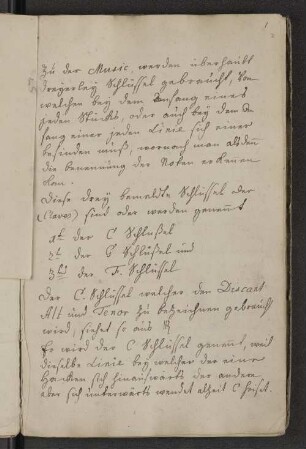 1
Zu der Music, werden überhaubt
dreyerley Schlüssel gebraucht, von
welchen bey dem Anfang eines
jeden Stücks, oder auch bey dem An
fang einer jeden Linie sich einer
befinden muß, wornach man als denn
die benennung der Noten erkennen
kan.
Diese drey bemeldte Schlüssel oder
(Claves) sind oder werden genennt
1te der C Schlüßel
2te der G Schlüßel und
3te der F. Schlüssel
Der C. Schlüssel welcher den Discant
Alt und Tenor zu bezeichnen gebraucht
wird, siehet so aus
Er wird der C Schlüssel genennt, weil
dieselbe Linie bey welcher der eine
Hacken sich hinaufwärts der andere
aber sich unterwärts wendet alzeit C heisst.